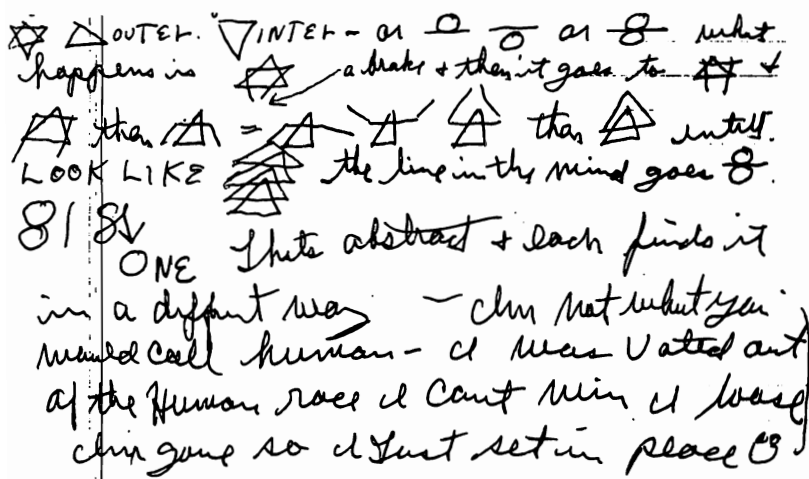 OUTER. INTER - or or 8 what
happens is a brake & then it goes to &
then = then untill.
LOOK LIKE the line in the mind goes 8.
8 1 8
ONE Thats abstract & each finds it
in a diffrunt way - Im not what you
would call human - I was Voted out
of the Human race I Cant Win I loose
Im gone so I Just set in peace